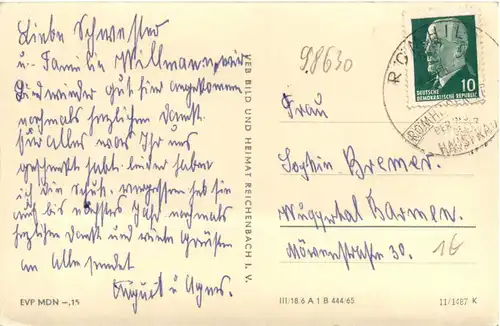 Liebe Schwester
u. Familie Willmann, wir
sind wieder gut hier angekommen
nochmals herzlichen Dank
für alles was Ihr uns
geschenkt habt. leider haben
ich die Schuh vergessen heb sie
auf bis nächstes Jahr nochmals
herzlichen Dank und viele Grüßen
an Alle sendet
August u Agnes.
EVP MDN –,15
VEB BILD UND HEIMAT REICHENBACH I. V.
98630
RÖMHILD
10
DEUTSCHE
DEMOKRATISCHE REPUBLIK
Frau
Sophie Bremer.
Wuppertal Barmen.
Möwenstraße 30.
16
III/18.6 A 1 B 444/65
11/1487 K